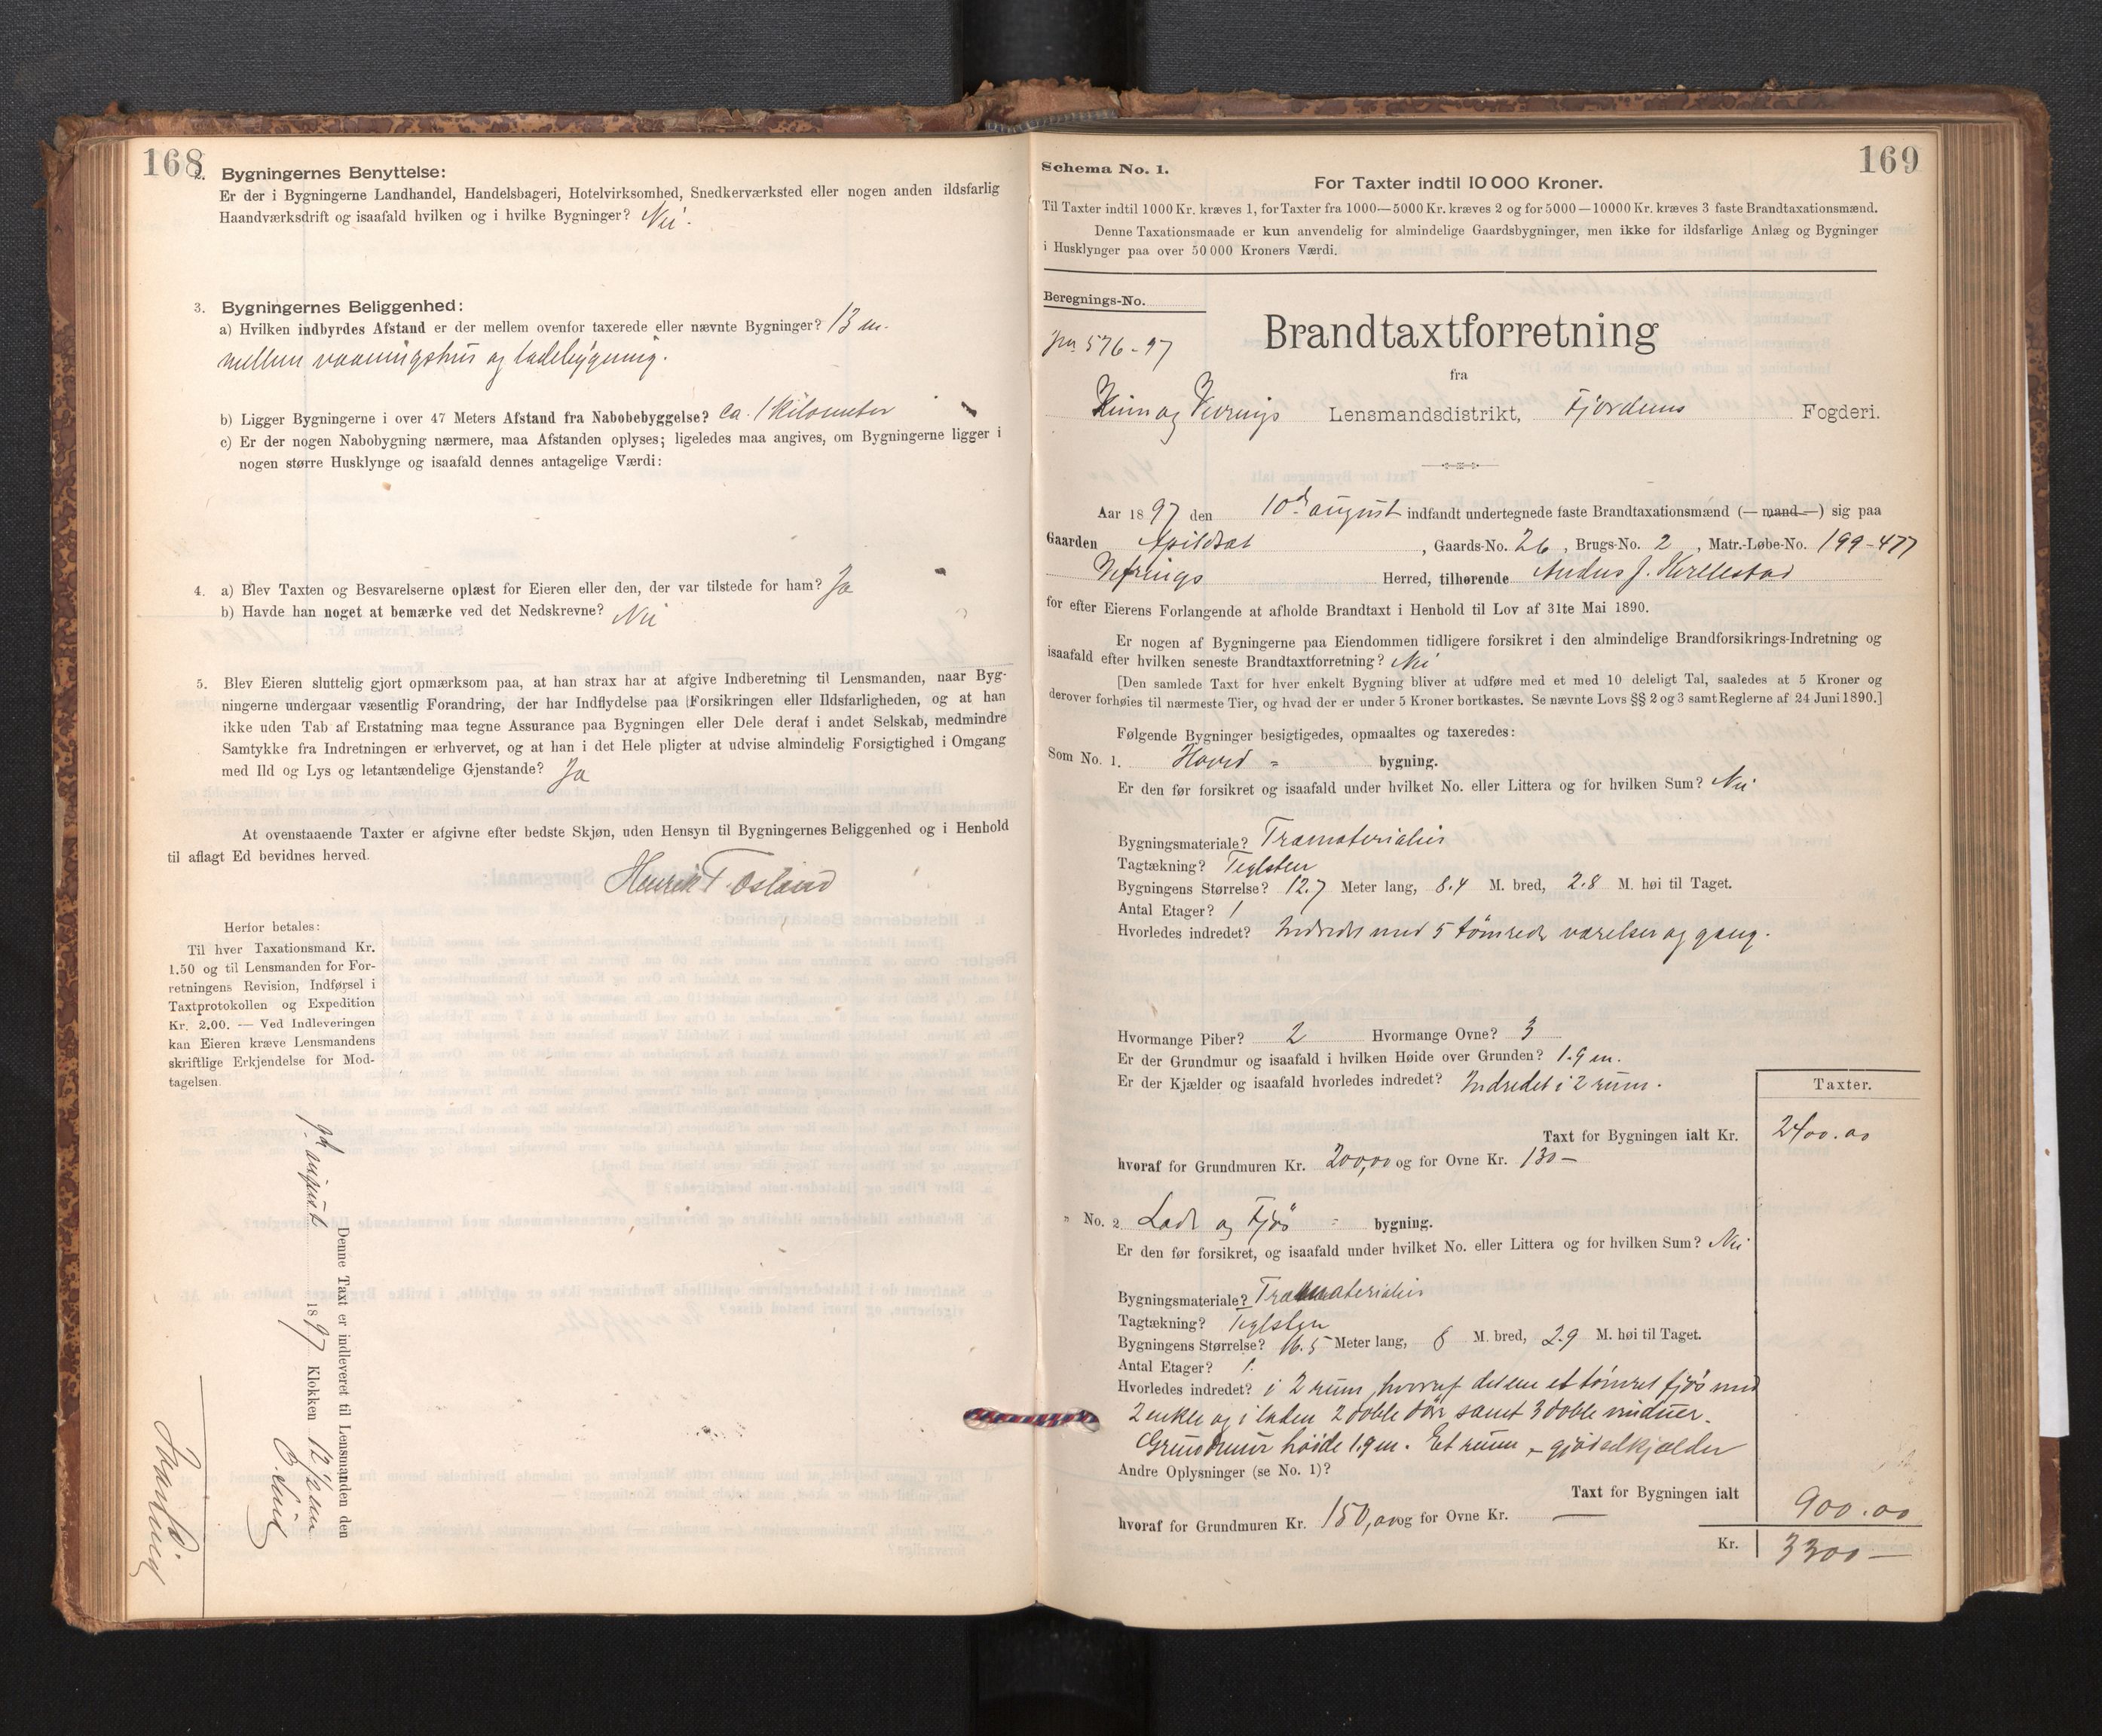 168
2. Bygningernes Benyttelse:
Er der i Bygningerne Landhandel, Handelsbageri, Hotelvirksomhed, Snedkerværksted eller nogen anden ildsfarlig
Haandværksdrift og isaafald hvilken og i hvilke Bygninger? Nei.
3. Bygningernes Beliggenhed:
a) Hvilken indbyrdes Afstand er der mellem ovenfor taxerede eller nævnte Bygninger? 13 m.
mellem vaaningshus og ladebygning.
b) Ligger Bygningerne i over 47 Meters Afstand fra Nabobebyggelse? ca. 1 kilometer
c) Er der nogen Nabobygning nærmere, maa Afstanden oplyses; ligeledes maa angives, om Bygningerne ligger i
nogen større Husklynge og isaafald dennes antagelige Værdi:
4. a) Blev Taxten og Besvarelserne oplæst for Eieren eller den, der var tilstede for ham? Ja
b) Havde han noget at bemærke ved det Nedskrevne? Nei
5. Blev Eieren sluttelig gjort opmærksom paa, at han strax har at afgive Indberetning til Lensmanden, naar Byg-
ningerne undergaar væsentlig Forandring, der har Indflydelse paa Forsikringen eller Ildsfarligheden, og at han
ikke uden Tab af Erstatning maa tegne Assurance paa Bygningen eller Dele deraf i andet Selskab, medmindre
Samtykke fra Indretningen er erhvervet, og at han i det Hele pligter at udvise almindelig Forsigtighed i Omgang
med Ild og Lys og letantændelige Gjenstande? Ja
At ovenstaaende Taxter er afgivne efter bedste Skjøn, uden Hensyn til Bygningernes Beliggenhed og i Henhold
til aflagt Ed bevidnes herved.
Henrik T. Osland
Herfor betales:
Til hver Taxationsmand Kr.
1.50 og til Lensmanden for For-
retningens Revision, Indførsel i
Taxtprotokollen og Expedition
Kr. 2.00. — Ved Indleveringen
kan Eieren kræve Lensmandens
skriftlige Erkjendelse for Mod-
tagelsen.
Denne Taxt er indleveret til Lensmanden den
9de august 1897 Klokken 12 1/2 em
169
Schema No. 1.
For Taxter indtil 10 000 Kroner.
Til Taxter indtil 1000 Kr. kræves 1, for Taxter fra 1000—5000 Kr. kræves 2 og for 5000—10000 Kr. kræves 3 faste Brandtaxationsmænd.
Denne Taxationsmaade er kun anvendelig for almindelige Gaardsbygninger, men ikke for ildsfarlige Anlæg og Bygninger
i Husklynger paa over 50 000 Kroners Værdi.
Beregnings-No.
Jno 576-97
Brandtaxtforretning
fra
Kinn og Vevrings Lensmandsdistrikt, Fjordens Fogderi.
Aar 1897 den 10de august indfandt undertegnede faste Brandtaxationsmænd (— mand —) sig paa
Gaarden Apildsæt, Gaards-No. 26, Brugs-No. 2, Matr.-Løbe-No. 199-477
Vefrings Herred, tilhørende Andus J. Kvellestad
for efter Eierens Forlangende at afholde Brandtaxt i Henhold til Lov af 31te Mai 1890.
Er nogen af Bygningerne paa Eiendommen tidligere forsikret i den almindelige Brandforsikrings-Indretning og
isaafald efter hvilken seneste Brandtaxtforretning? Nei
[Den samlede Taxt for hver enkelt Bygning bliver at udføre med et med 10 deleligt Tal, saaledes at 5 Kroner og
derover forhøies til nærmeste Tier, og hvad der er under 5 Kroner bortkastes. Se nævnte Lovs §§ 2 og 3 samt Reglerne af 24 Juni 1890.]
Følgende Bygninger besigtigedes, opmaaltes og taxeredes:
Som No. 1. Hoved = bygning.
Er den før forsikret og isaafald under hvilket No. eller Littera og for hvilken Sum? Nei
Bygningsmateriale? Træmaterialier
Tagtækning? Teglsten
Bygningens Størrelse? 12.7 Meter lang, 8.4 M. bred, 2.8 M. høi til Taget.
Antal Etager? 1
Hvorledes indredet? Indredet med 5 tømrede værelser og gang.
Hvormange Piber? 2 Hvormange Ovne? 3
Er der Grundmur og isaafald i hvilken Høide over Grunden? 1.9 m.
Er der Kjælder og isaafald hvorledes indredet? Indredet i 2 rum.
Taxter.
Taxt for Bygningen ialt Kr. 2400.00
hvoraf for Grundmuren Kr. 200,00 og for Ovne Kr. 130 —
" No. 2. Lade og Fjøs = bygning.
Er den før forsikret, og isaafald under hvilket No. eller Littera og for hvilken Sum? Nei
Bygningsmateriale? Træmaterialier
Tagtækning? Teglsten
Bygningens Størrelse? 16.5 Meter lang, 8 M. bred, 2.9 M. høi til Taget.
Antal Etager? 1.
Hvorledes indredet? i 2 rum, hvoraf det ene et tømret fjøs med
2 enkle og i laden 2 doble døre samt 3 doble vinduer.
Grundmur høide 1.9 m. Et rum - gjødselkjælder
Andre Oplysninger (se No. 1)?
Taxt for Bygningen ialt 900.00
hvoraf for Grundmuren Kr. 150,00 og for Ovne Kr. —
Kr. 3300 —